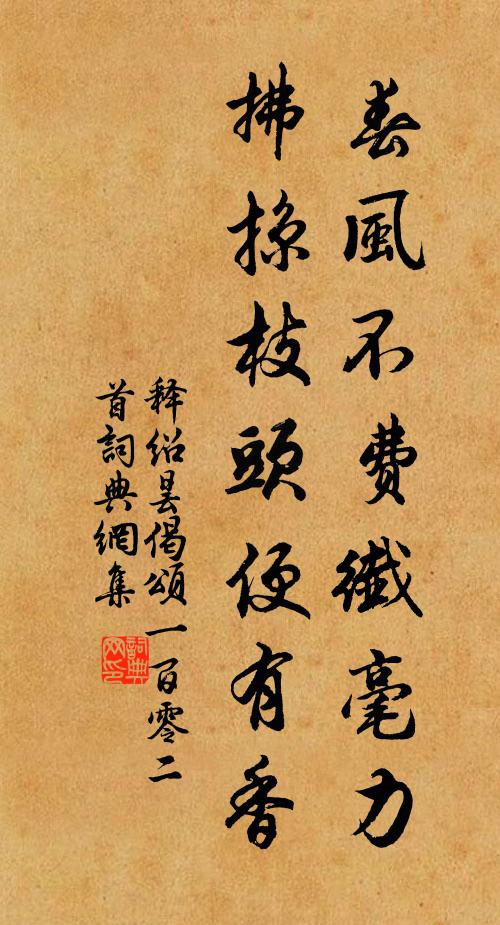 春風不費纖毫力
拂掠枝頭便有香
释紹曇偈頌一百零二
首詞典網集
詞典网印